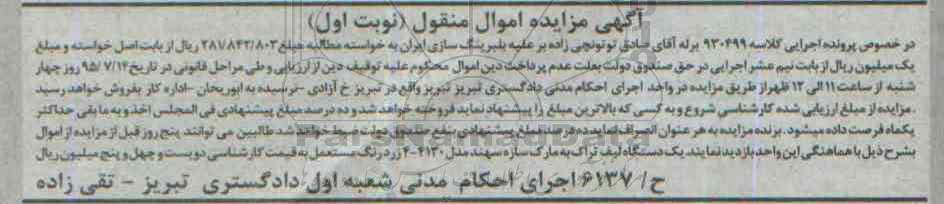 آگهی مزایده اموال منقول (نوبت اول)
در خصوص پرونده اجرایی کلاسه ۹۳۰۴۹۹ برله آقای صادق توتونچی زاده بر علیه بلبرینگ سازی ایران به خواسته مطالبه مبلغ ۲۸۱/۸۴۲/۸۰۳ ریال از بابت اصل خواسته و مبلغ
یک میلیون ریال از بابت نیم عشر اجرایی در حق صندوق دولت بعلت عدم پرداخت دین اموال محکوم علیه توقیف دین از ارزیابی و طی مراحل قانونی در تاریخ ۹۵/۷/۱۴ روز چهار
شنبه از ساعت ۱۱ الی ۱۲ ظهر از طریق مزایده در واحد اجرای احکام مدنی دادگستری تبریز تبریز واقع در تبریز خ آزادی -نرسیده به ابوریحان -اداره کار بفروش خواهد رسید
.مزایده از مبلغ ارزیابی شده کارشناسی شروع و به کسی که بالاترین مبلغ را پیشنهاد نماید فروخته خواهد شد و ده درصد مبلغ پیشنهادی فی المجلس اخذ و به مابقی حداکثر
یکماه فرصت داده میشود. برنده مزایده به هر عنوان انصراف نماید ده درصد مبلغ پیشنهادی بنفع صندوق دولت ضبط خواهد شد طالبین می توانند پنج روز قبل از مزایده از اموال
بشرح ذیل با هماهنگی این واحد بازدید نمایند. یک دستگاه لیف تراک به مارک سازه سهند مدل ۴۱۳۰-۴ زرد رنگ مستعمل به قیمت کارشناسی دویست و چهل و پنج میلیون ریال
ح/ ۶۱۳۷ اجرای احکام مدنی شعبه اول دادگستری تبریز - تقی زاده